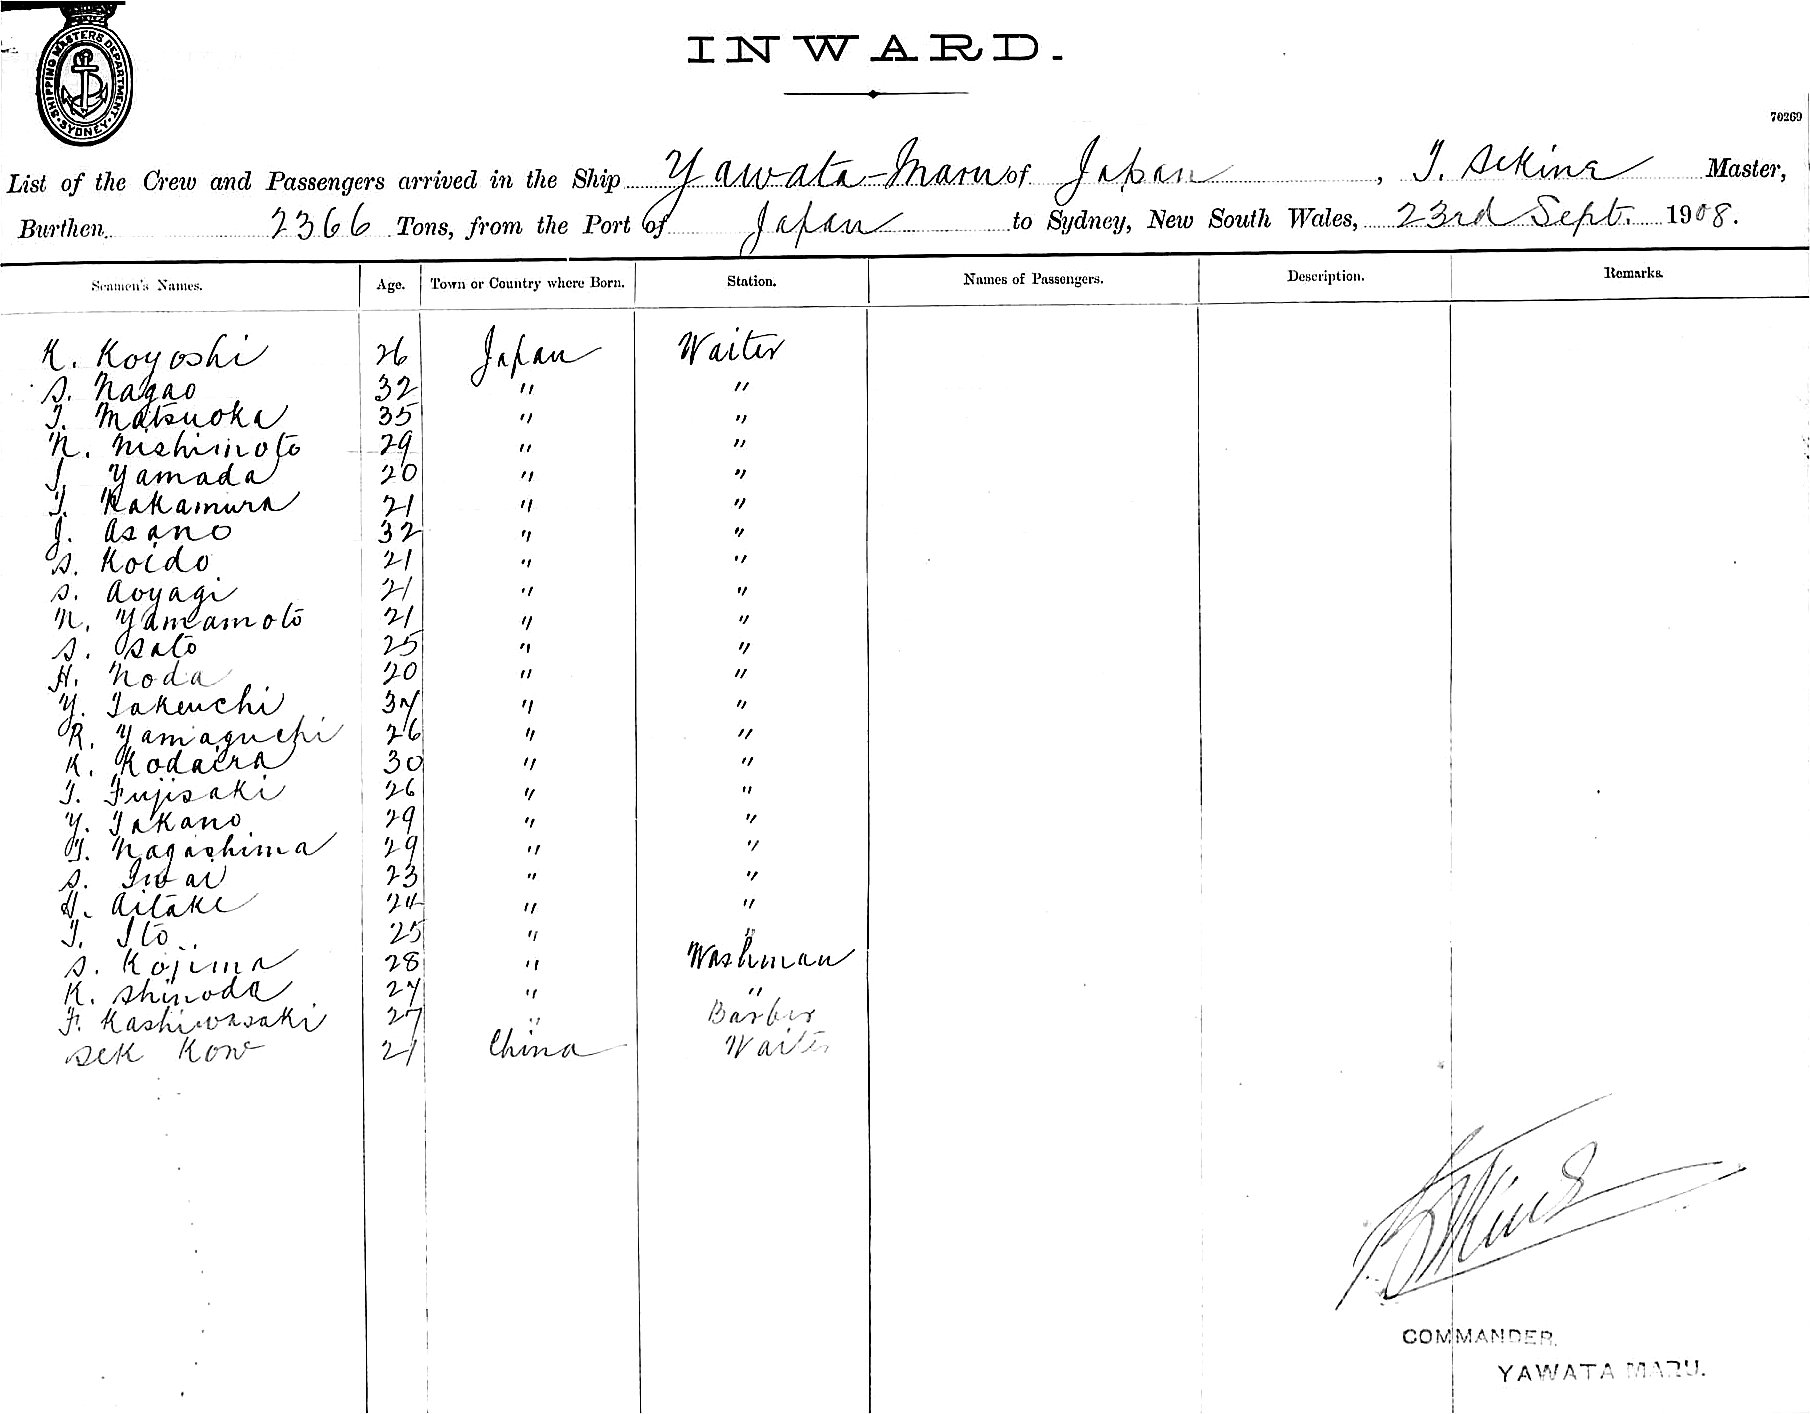 SHIPPING MASTERS DEPARTMENT
SYDNEY
INWARD.
70269
List of the Crew and Passengers arrived in the Ship Yawata-Maru of Japan, T. Sekine Master,
Burthen 2366 Tons, from the Port of Japan to Sydney, New South Wales, 23rd Sept. 1908.
Seamen's Names. Age. Town or Country where Born. Station. Names of Passengers. Description. Remarks.
K. Koyoshi 26 Japan Waiter
S. Nagao 32 " "
T. Matsuoka 35 " "
N. Nishimoto 29 " "
Yamada 20 " "
T. Nakamura 21 " "
J. Asano 32 " "
S. Koido 21 " "
S. Aoyagi 21 " "
N. Yamamoto 21 " "
S. Sato 25 " "
H. Noda 20 " "
Y. Takeuchi " "
R. Yamaguchi 26 " "
K. Kodaira 30 " "
T. Fujisaki 26 " "
Y. Takano 29 " "
T. Nagashima 29 " "
S. Iwai 23 " "
H. Aitake 24 " "
T. Ito 25 " "
S. Kojima 28 " Washman
K. Shinoda 27 " "
F. Kashiwasaki 27 " Barber
Sek Kow 21 China Waiter
COMMANDER,
YAWATA MARU.